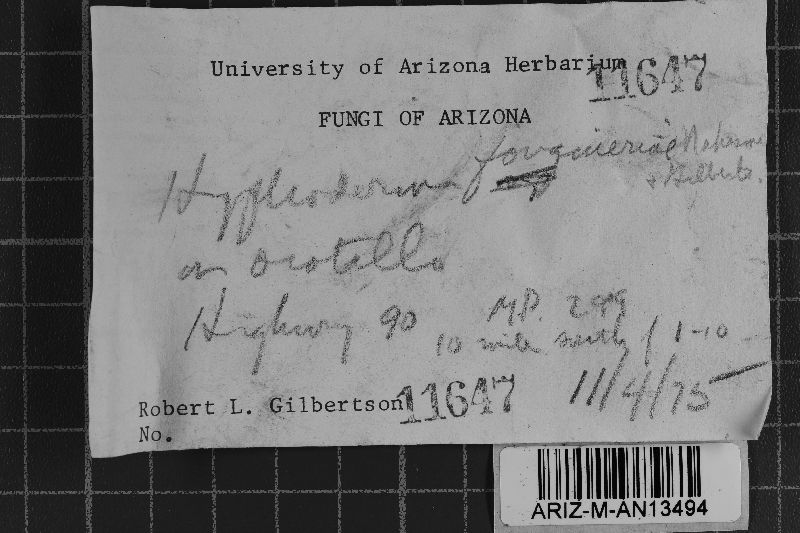 University of Arizona Herbarium 11647
FUNGI OF ARIZONA
Hyphoderma fouquieriae Nakasone
& Gilberts.
on ocotillo
Highway 90 M.P. 299
10 miles south of I-10
11/4/75
Robert L. Gilbertson 11647
No.
ARIZ-M-AN13494